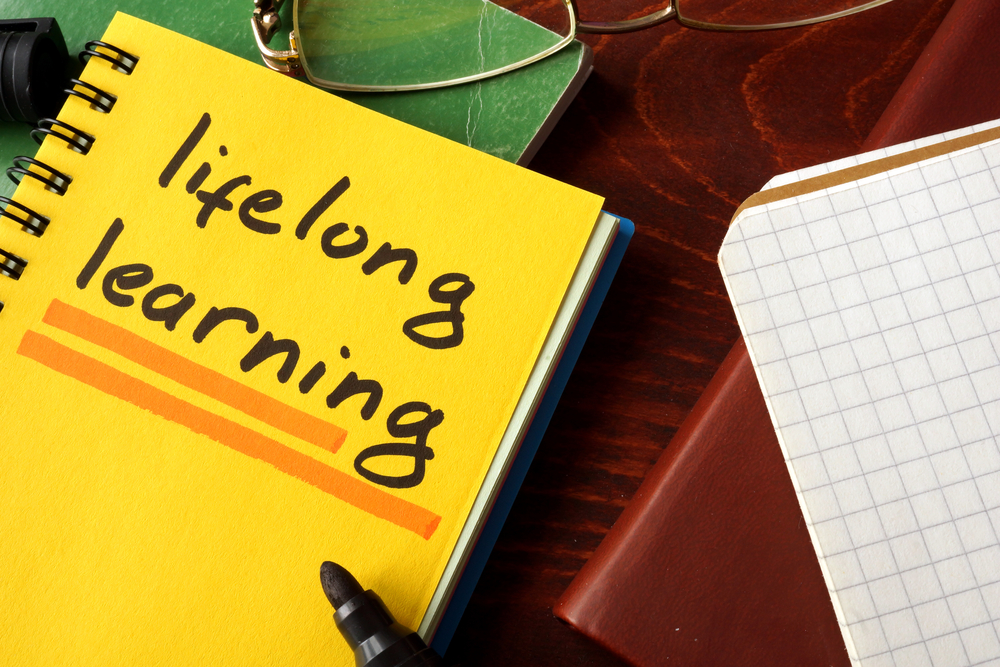 lifelong
learning